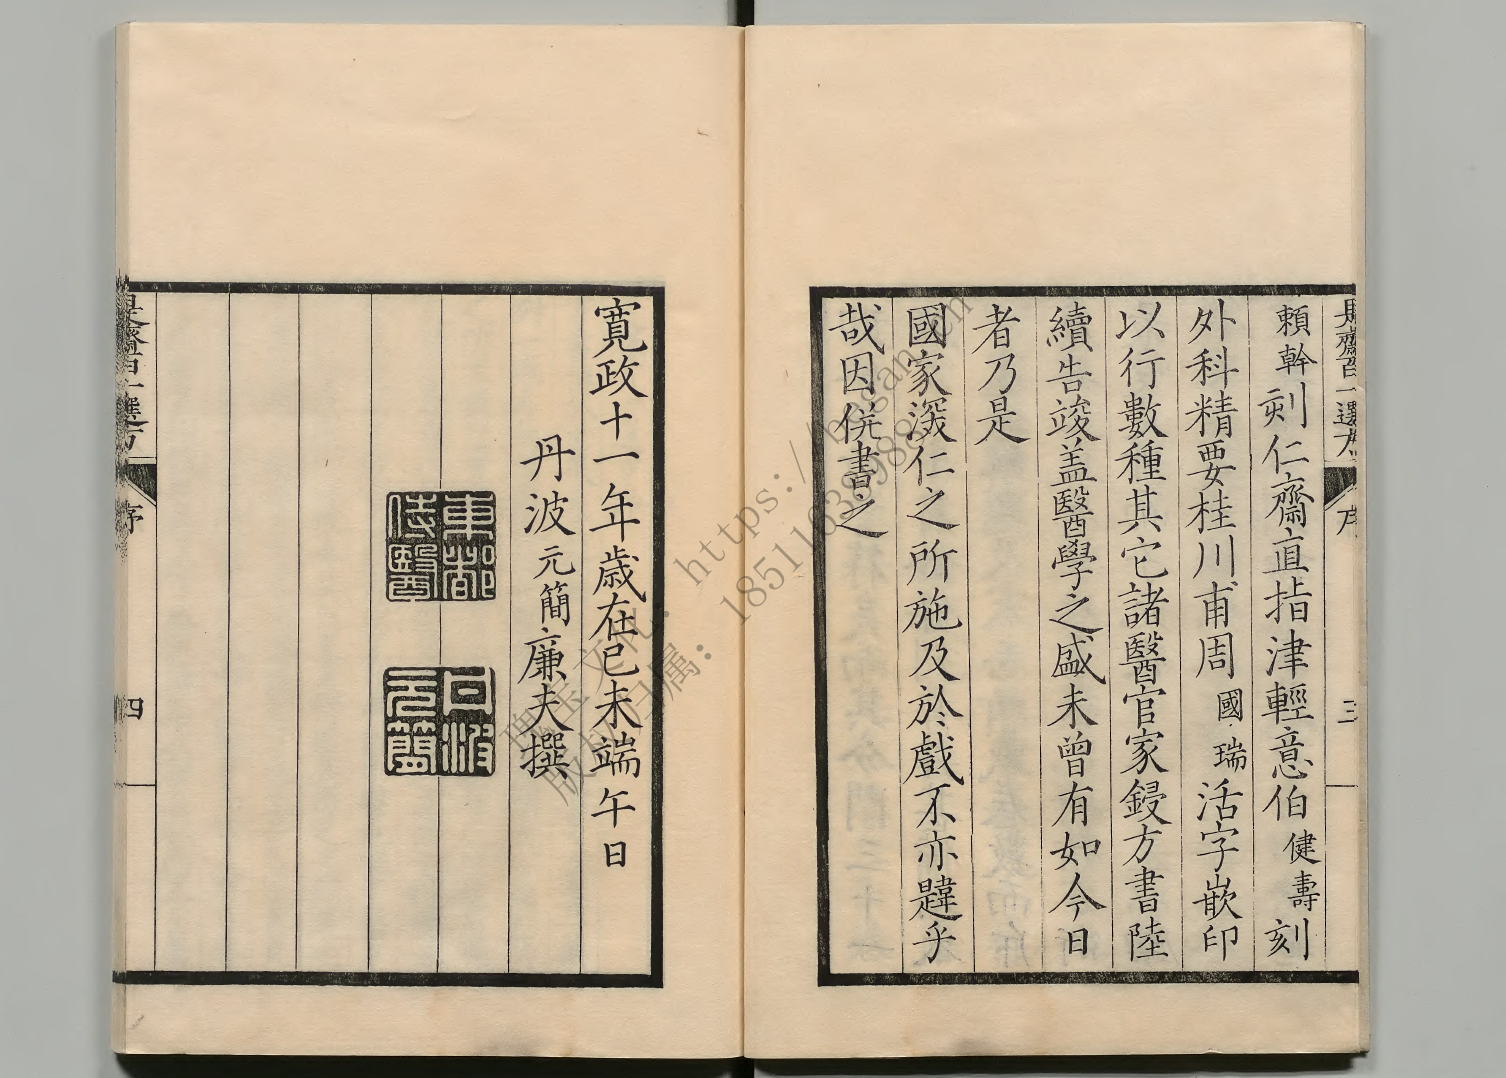 是齋百一選方
序
三
賴幹刻仁齋直指津輕意伯健壽刻
外科精要桂川甫周國瑞活字嵌印
以行數種其它諸醫官家鋟方書陸
續告竣盖醫學之盛未曾有如今日
者乃是
國家深仁之所施及於戲不亦韙乎
哉因併書之
寬政十一年歲在己未端午日
丹波元簡廉夫撰
東都
侍醫
丹波
元簡
是齋百一選方
序
四
https://bagan.cn